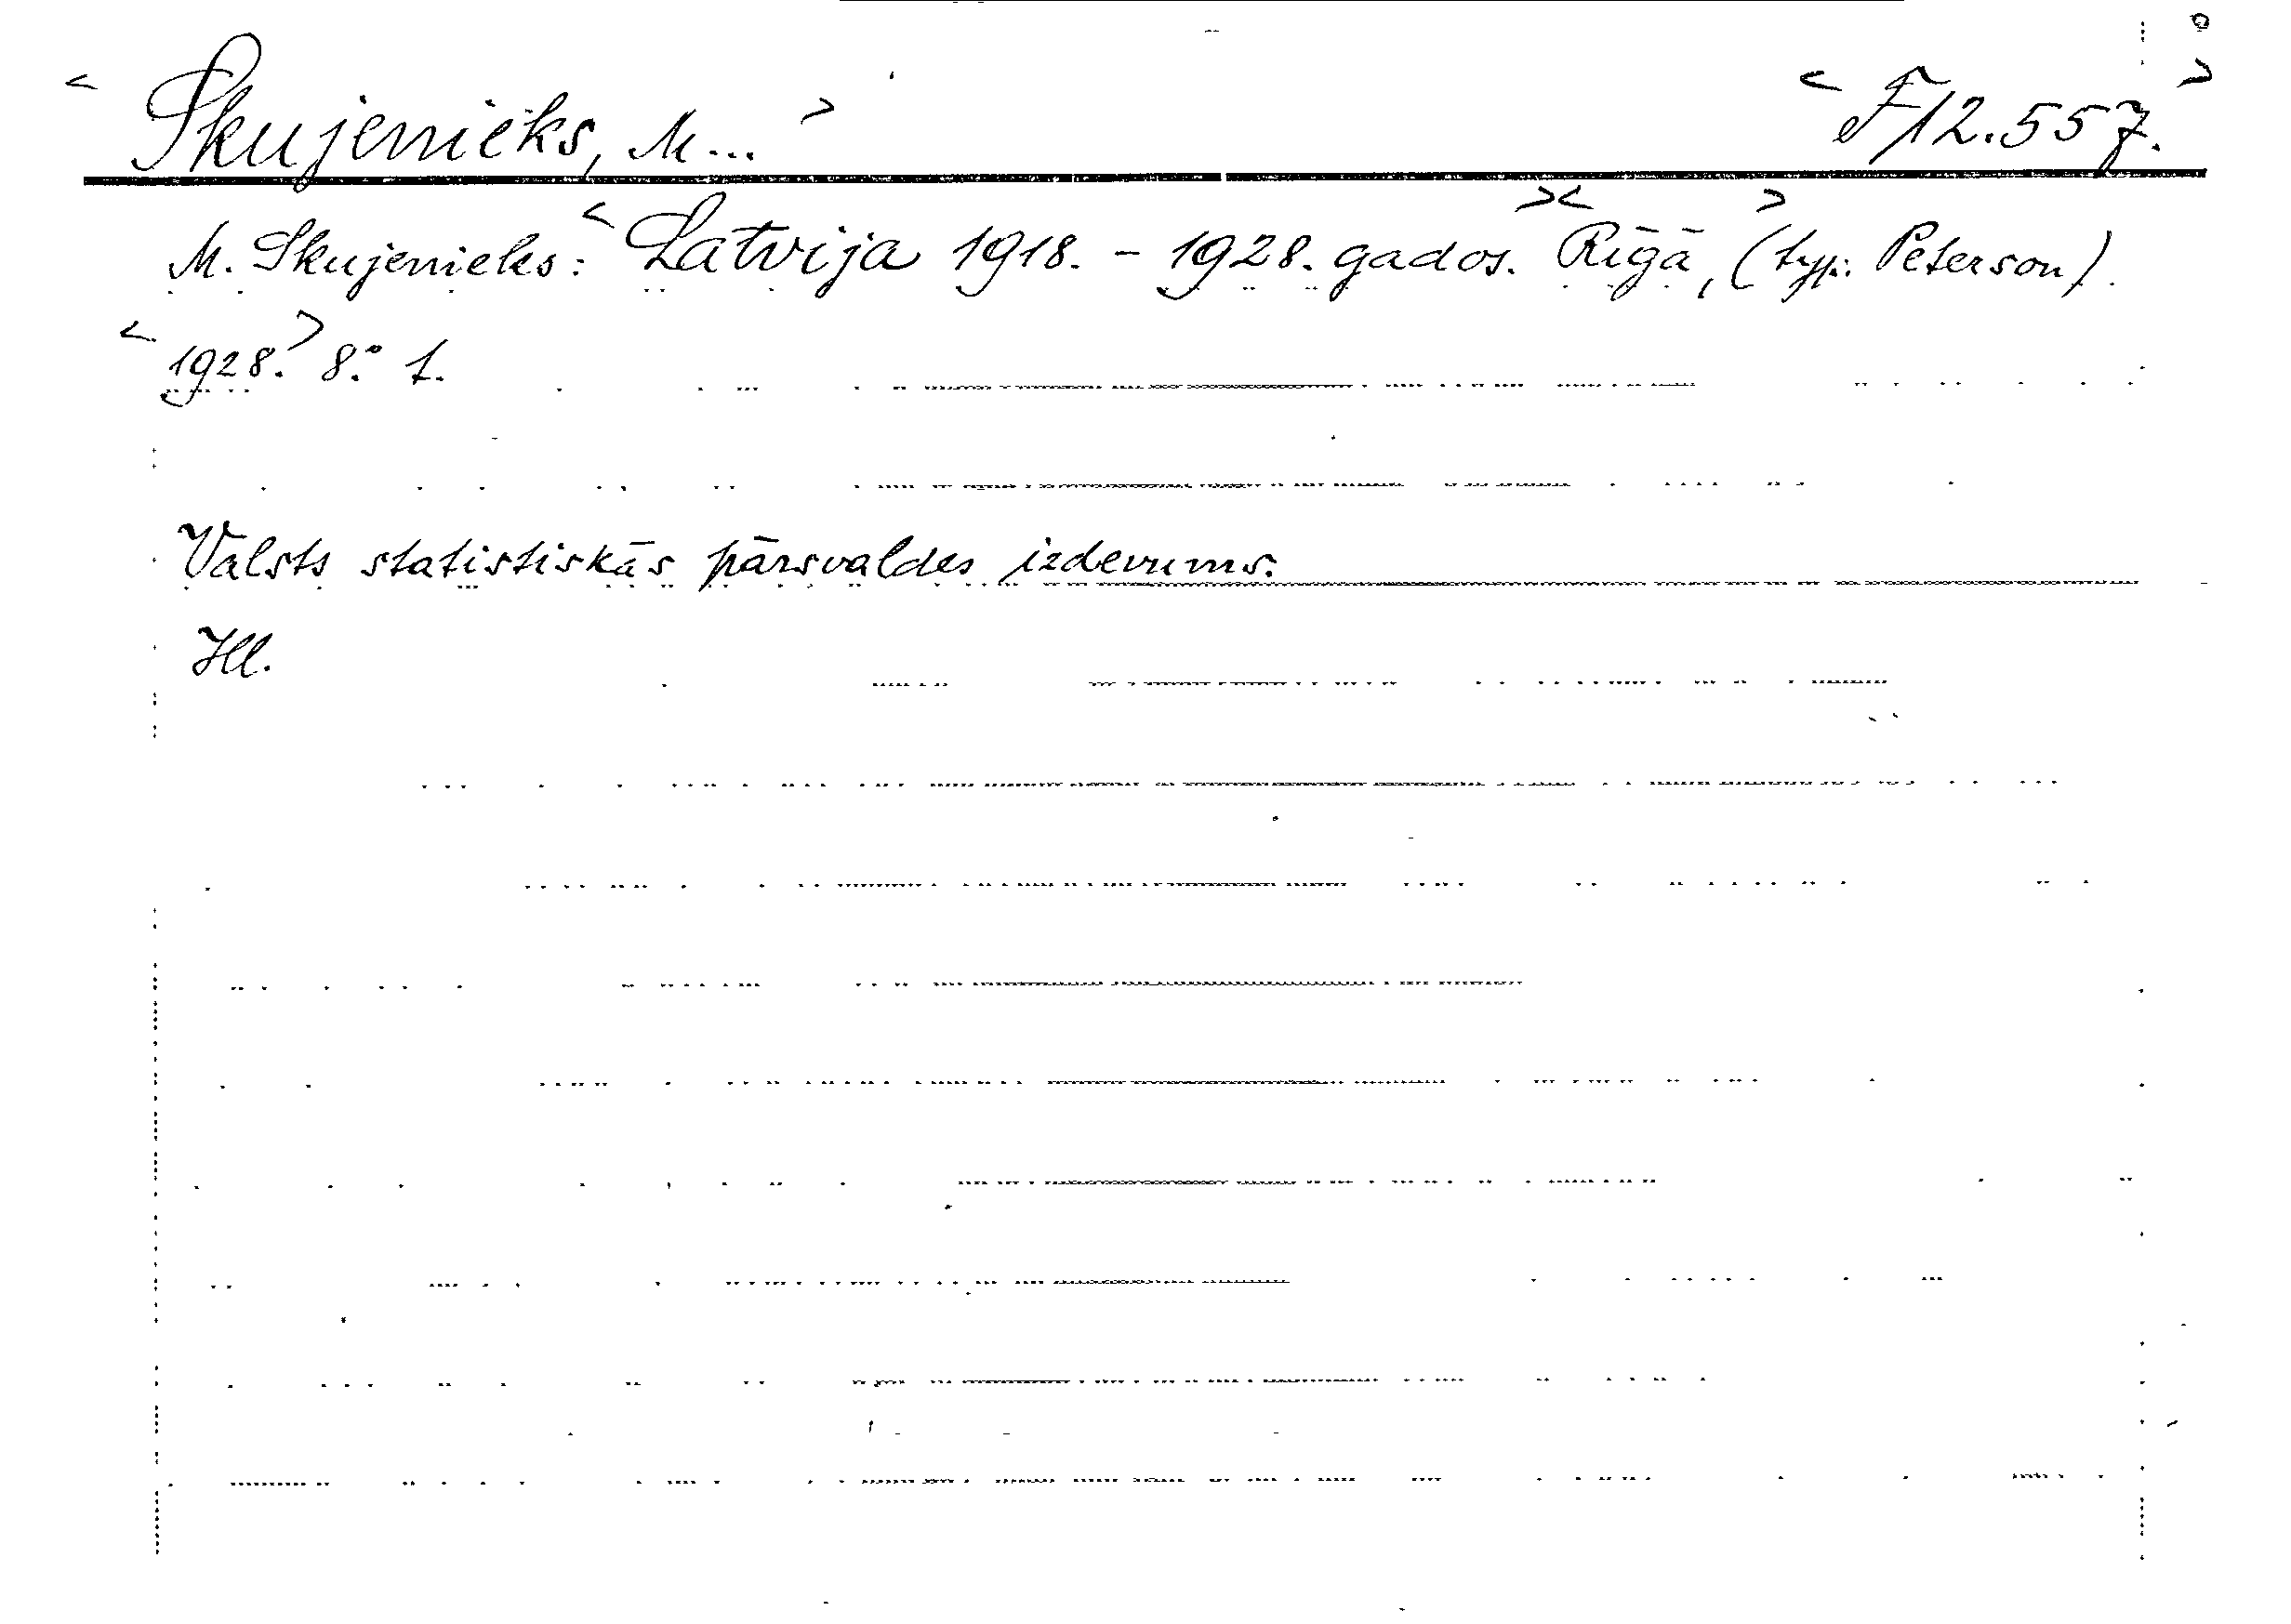 <Skujenieks, M...> <F12.557.>
M. Skujenieks: <Latvija 1918. - 1928. gados.> <Rīgā,> (typ. Peterson).
<1928.> 8.° 1.
Valsts statistiskās pārsvaldes izdevums.
Ill.